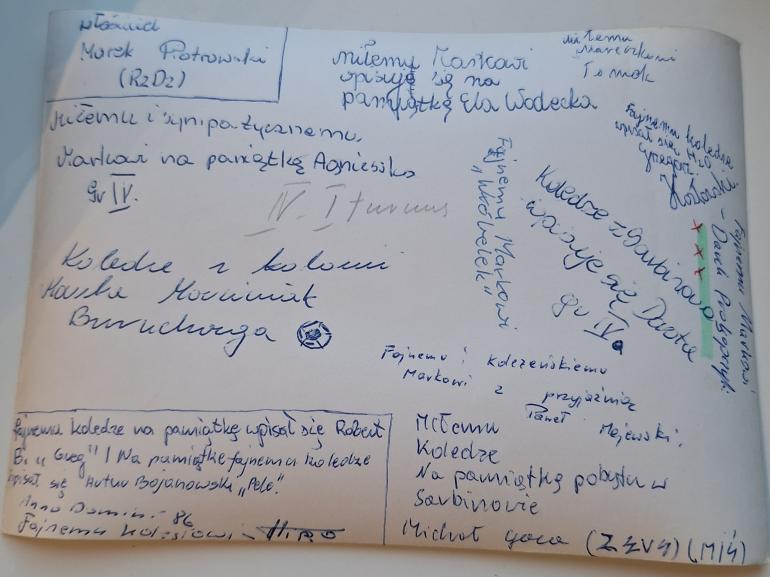 właściciel
Marek Piotrowski
(R2D2)
Miłemu Markowi
wpisuję się na
pamiątkę Ela Wodecka
Miłemu
Mareczkowi
Tomek
Miłemu i sympatycznemu
Markowi na pamiątkę Agnieszka
gr IV.
IV. I turnus
Fajnemu koledze
wpisał się H2O
Fajnemu Markowi
„Wróbelek"
Koledze z Sarbinowa
wpisuje się Dorota
gr IVa
Fajnemu Markowi
- Darek
Koledze z kolonii
Fajnemu i koleżeńskiemu
Markowi z przyjaźnią
Paweł Majewski.
Fajnemu koledze na pamiątkę wpisał się Robert
B. „Greg" / Na pamiątkę fajnemu koledze
wpisał się Artur Bojanowski „Pele".
Anno Domini - 86
Fajnemu kolesiowi -
Miłemu
Koledze
Na pamiątkę pobytu w
Sarbinowie
Michał (MIŚ)